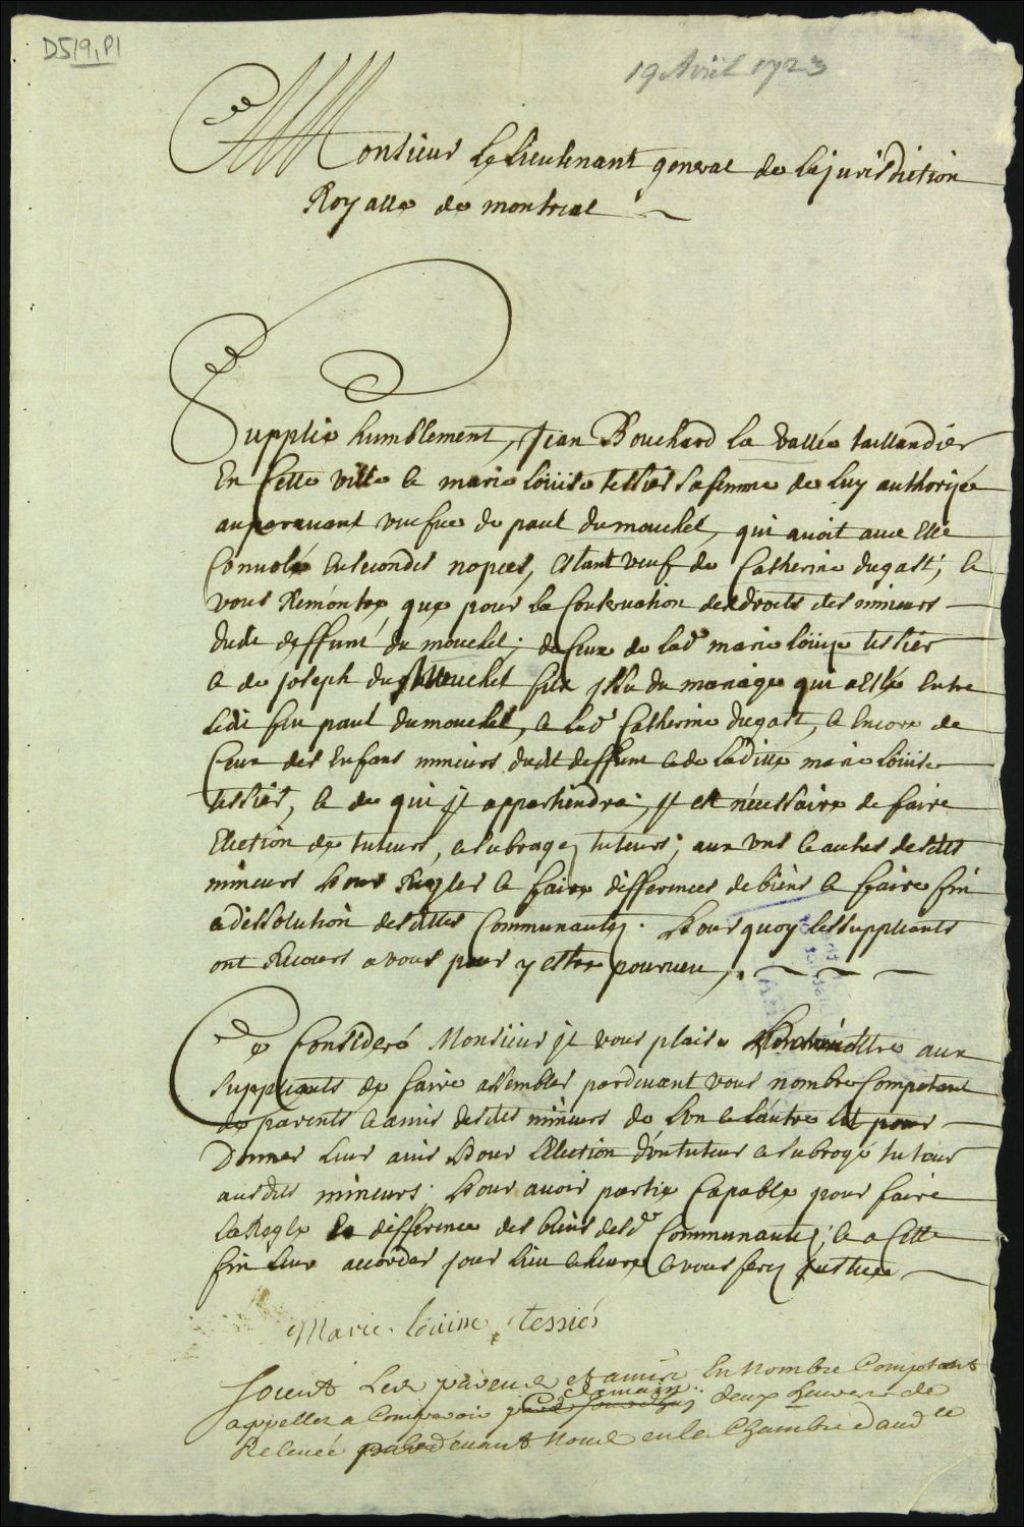 D519, P1
19 Avril 1723
Monsieur Le Lieutenant general de la jurisdiction
Royalle de montreal
Supplie humblement, Jean Bouchard la Vallée taillandier
En Cette ville & marie Loüise tessier sa femme de luy authorisée
auparauant veufue de paul dumouchel, qui auoit auec Elle
Conuolé En secondes nopces, estant veuf de Catherine dugast; &
vous Remontre, que pour la Conseruation des droits des mineurs
dudt deffunt du mouchel; de Ceux de lade marie loüise tessier
& de joseph du Mouchel fils yssu du mariage qui a esté Entre
ledit feu paul dumouchel, & lade Catherine dugast, & Encore de
Ceux des Enfans mineurs dudt deffunt & de Laditte marie loüise
tessier, & de qui jl appartiendra, jl est nécessaire de faire
Election de tuteurs, & subrogez tuteurs, aux vns & autres desdts
mineurs Pour Regler & faire differences de biens & faire fin
& dissolution desdittes Communautez. Pour quoy les suppliants
ont Recours a vous pour y estre pourueu,.
Ce Consideré Monsieur jl vous plaise aux
suppliants de faire assembler pardeuant vous nombre Competant
de parents & amis desdts mineurs de L'un & L'autre Lit pour
Donner Leur auis Pour L'Election d'un tuteur & subrogé tuteur
ausdts mineurs. Pour auoir partie Capable pour faire
La Regle & difference des biens desde Communautez; & a Cette
fin Leur accorder jour Lieu & heure & vous ferez justice
Marie Louise tessier
Soient Les parens et amis En Nombre Competant
appellez a Comparoir demain deux heures de
Relevée pardeuant Nous en la Chambre d'audce